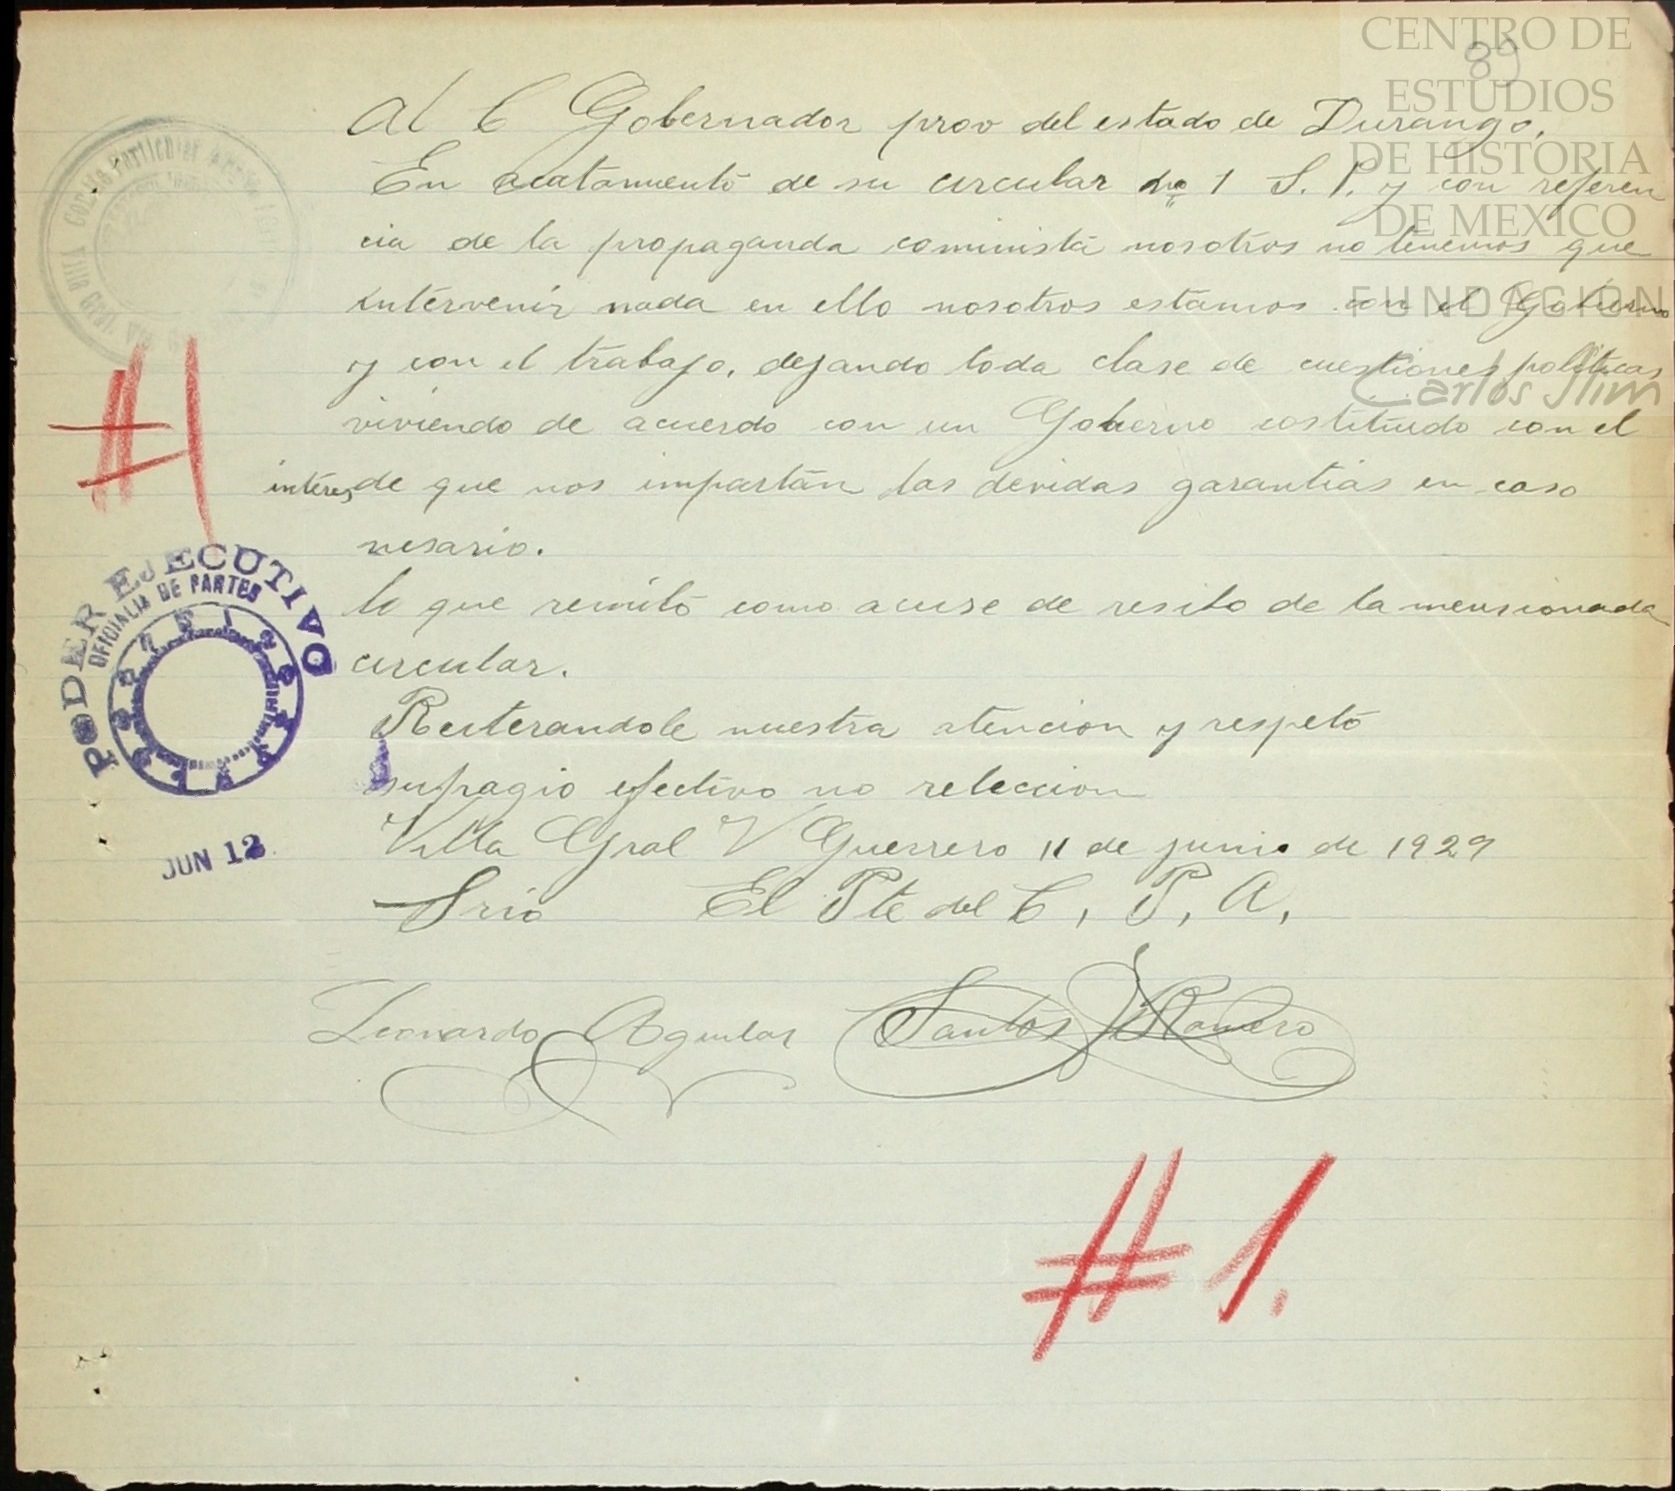 CENTRO DE
ESTUDIOS
DE HISTORIA
DE MEXICO
FUNDACIÓN
Carlos Slim
89
Al C Gobernador prov del estado de Durango,
En acatamiento de su circular No 1 S. P. y con referen
cia de la propaganda cominista nosotros no tenemos que
intervenir nada en ello nosotros estamos con el Gobierno
y con el trabajo, dejando toda clase de cuestiones politicas
viviendo de acuerdo con un Gobierno costituido con el
interes de que nos impartan las devidas garantias en caso
nesario.
lo que remito como acuse de resibo de la mensionada
circular.
Reiterandole nuestra atencion y respeto
sufragio efectivo no releccion
Villa Gral V Guerrero 11 de junio de 1929
Srio El Pte del C, P, A,
Leonardo Aguilar Santos Romero
#1
PODER EJECUTIVO
OFICIALIA DE PARTES
JUN 12
# 1.